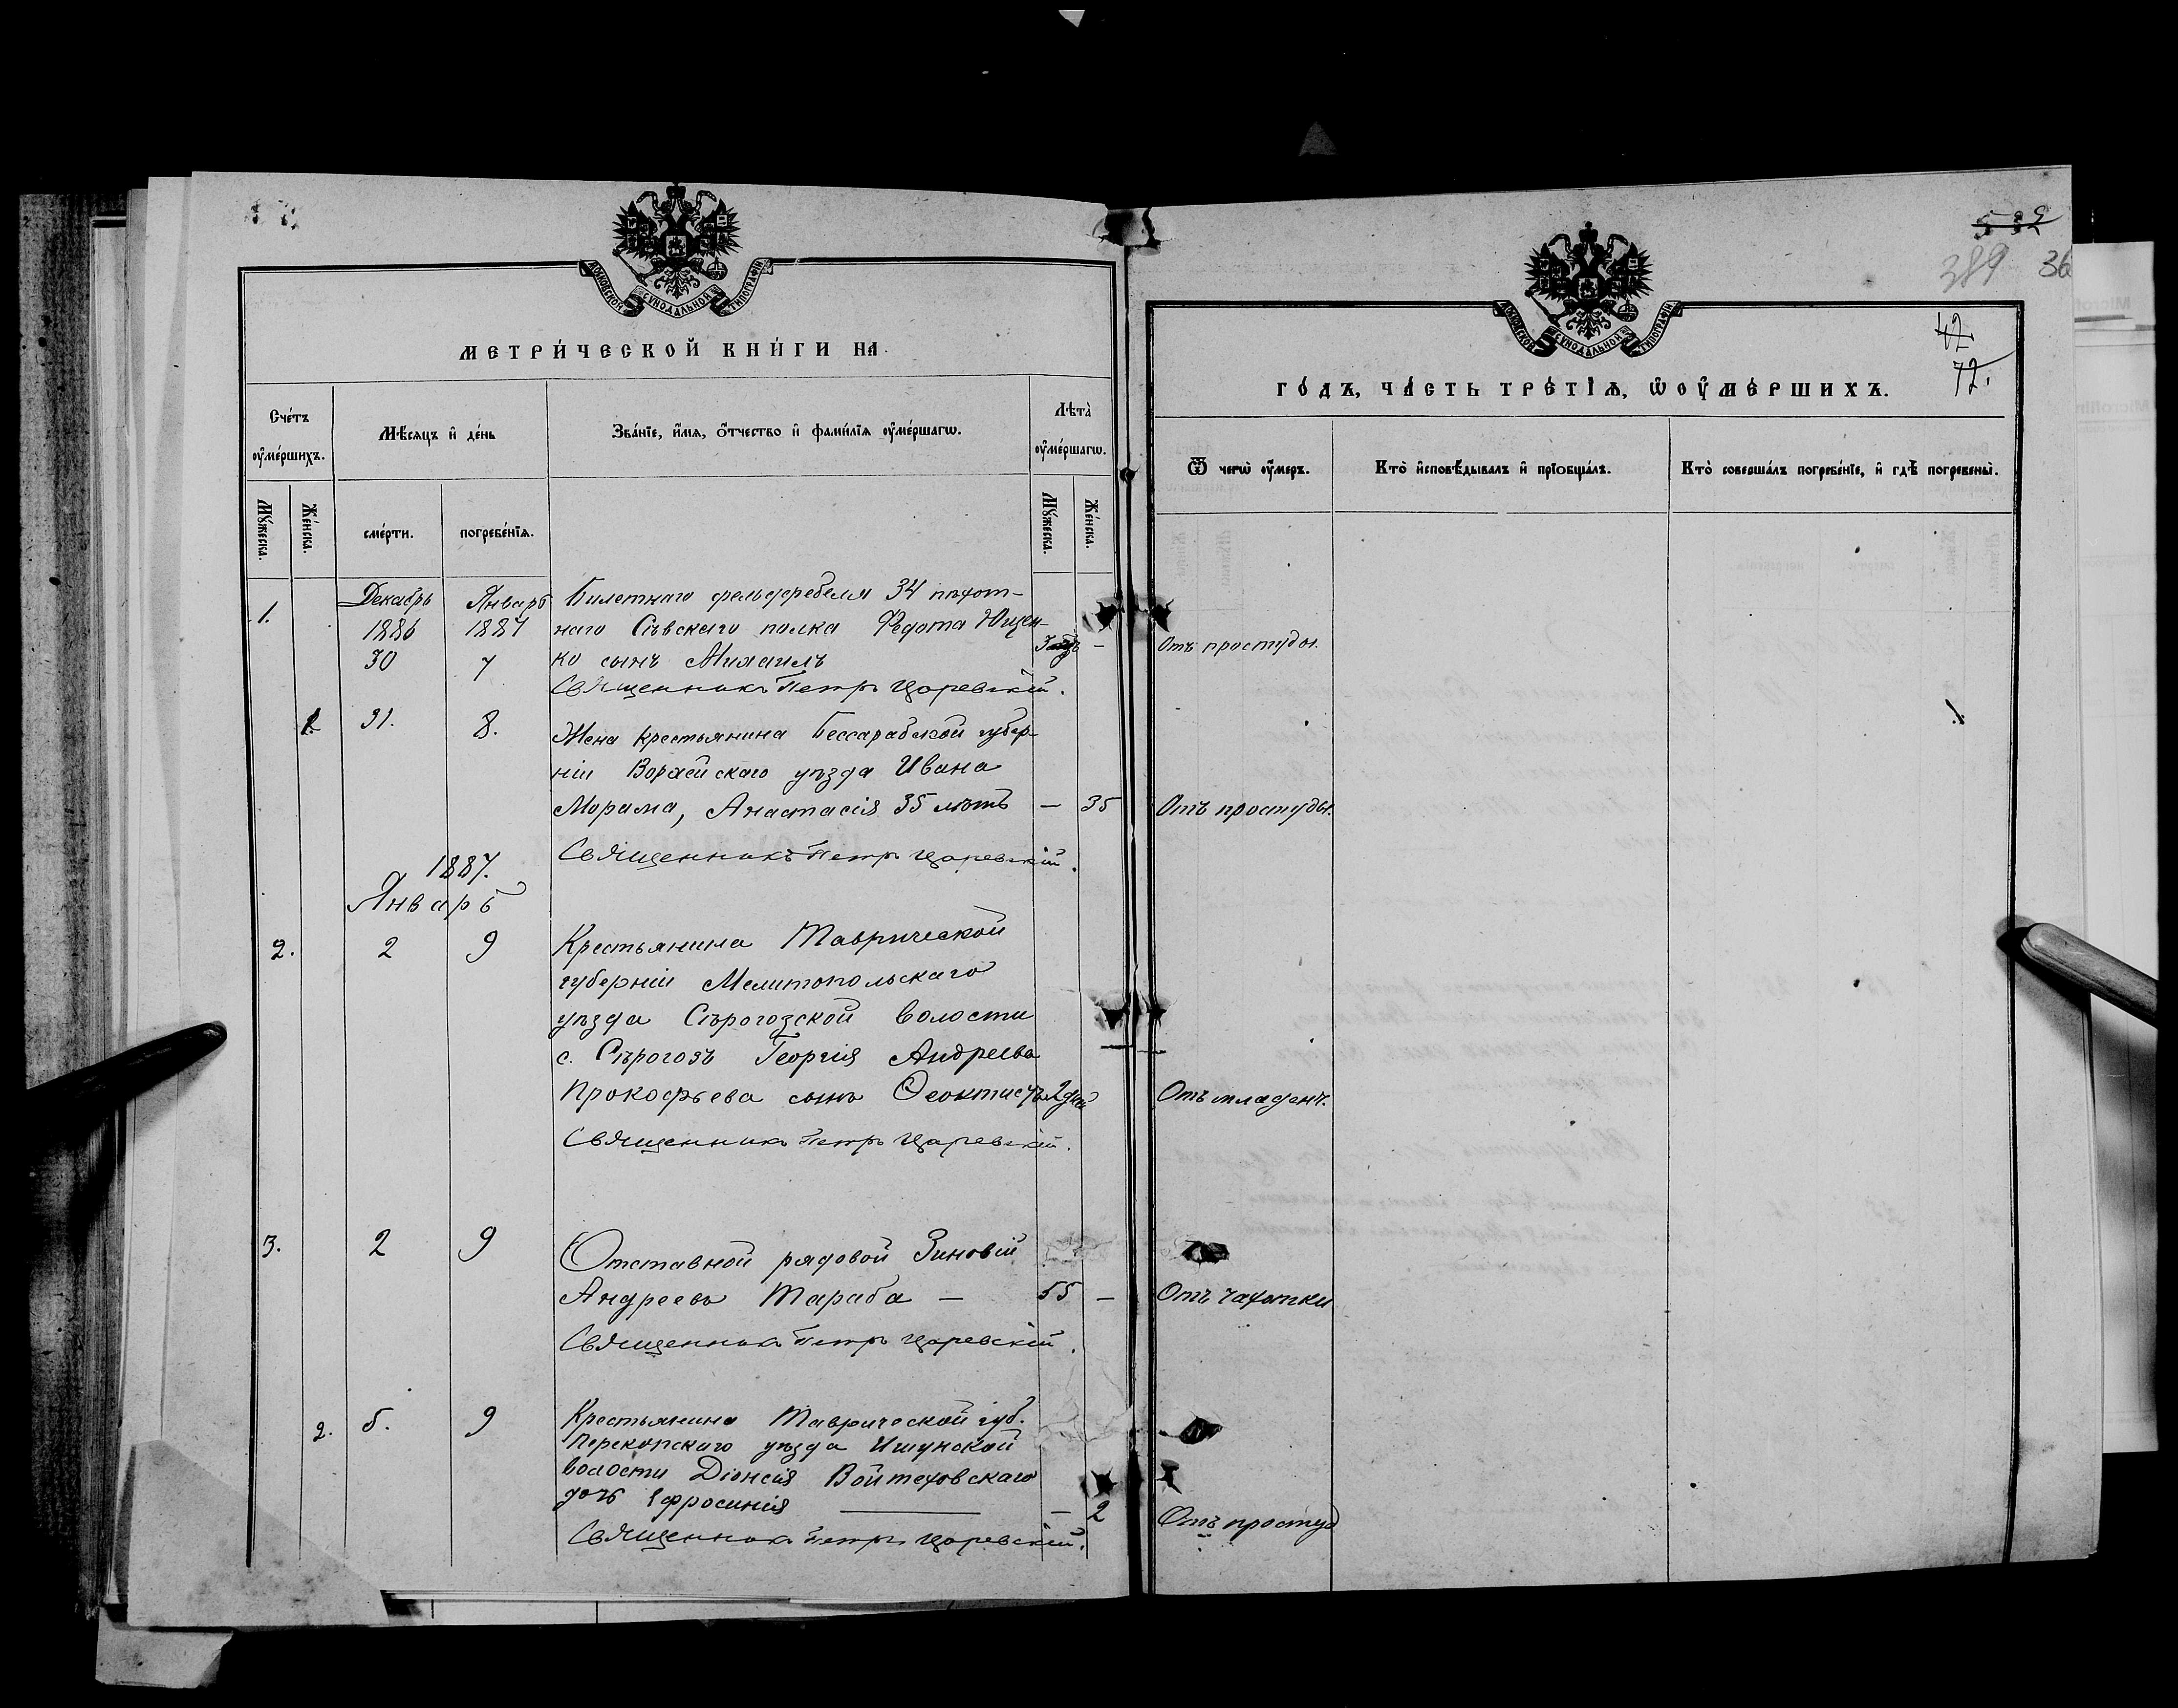 МОСКОВСКОЙ СѴНОДАЛЬНОЙ ТИПОГРАФІИ
МЕТРИ́ЧЕСКОЙ КНИ́ГИ НА
Сче́тъ ᲂу҆ме́ршихъ.
Мѣ́сѧцъ и҆ де́нь
Зва́нїе, и҆́мѧ, ѻ҆́тчество и҆ фами́лїѧ ᲂу҆ме́ршагѡ.
Лѣта̀ ᲂу҆ме́ршагѡ.
Мꙋ́жеска.
Же́нска.
сме́рти.
погребе́нїѧ.
Мꙋ́жеска.
Же́нска.
1.
Декабрь 1886 30
Январь 1887 7
Билетнаго фельдфебеля 34 пѣхот-
наго Сѣвскаго полка Федота Ющен-
ко сынъ Михаилъ
—
Священникъ Петръ Царевскій.
31.
8.
Жена крестьянина Бессарабской губер-
ніи уѣзда Ивана
Морама, Анастасія 35 лѣтъ — 35
Священникъ Петръ Царевскій.
1887.
Январь
2.
2
9
Крестьянина Таврической
губерніи Мелитопольскаго
уѣзда Сѣрогозской волости
с. Сѣрогозъ Георгія Андреева
Прокофьева сынъ Ѳеоктистъ 2 дней
Священникъ Петръ Царевскій.
3.
2
9
Отставной рядовой Зиновій
Андреевъ Тараба — 55 —
Священникъ Петръ Царевскій.
2.
5.
9
Крестьянина Таврической губ.
Перекопскаго уѣзда Ишунской
волости Діонисія Войтеховскаго
дочь Ефросинія — — 2
Священникъ Петръ Царевскій.
389 36
МОСКОВСКОЙ СѴНОДАЛЬНОЙ ТИПОГРАФІИ
42
72.
ГО́ДЪ, ЧА́СТЬ ТРЕ́ТЇѦ, Ѡ҆ ОУ҆МЕ́РШИХЪ.
Ѿ чегѡ̀ ᲂу҆́меръ.
Кто̀ и҆сповѣ́дывалъ и҆ прїѡбща́лъ.
Кто̀ соверша́лъ погребе́нїе, и҆ гдѣ̀ погребены̀.
Отъ простуды.
Отъ простуды.
Отъ младенч.
Отъ чахотки
Отъ простуд